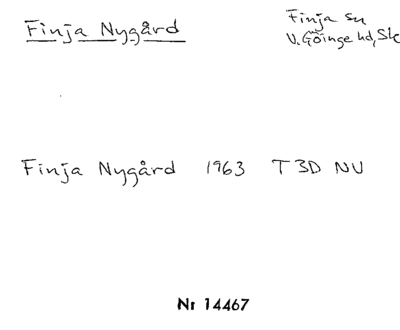 Finja Nygård
Finja sn
V. Göinge hd, Sk
Finja Nygård 1963 T3D NV
Nr 14467